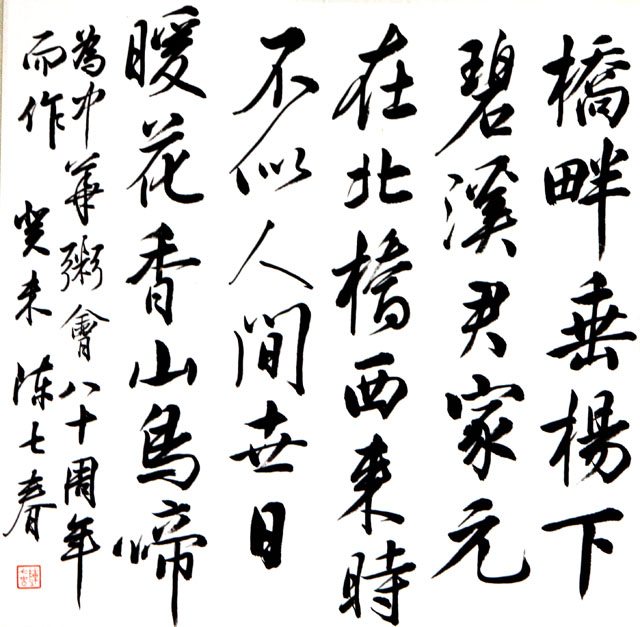 橋畔垂楊下
碧溪君家元
在北橋西來時
不似人間世日
暖花香山鳥啼
為中華粥會八十周年
而作 癸未 陳七春